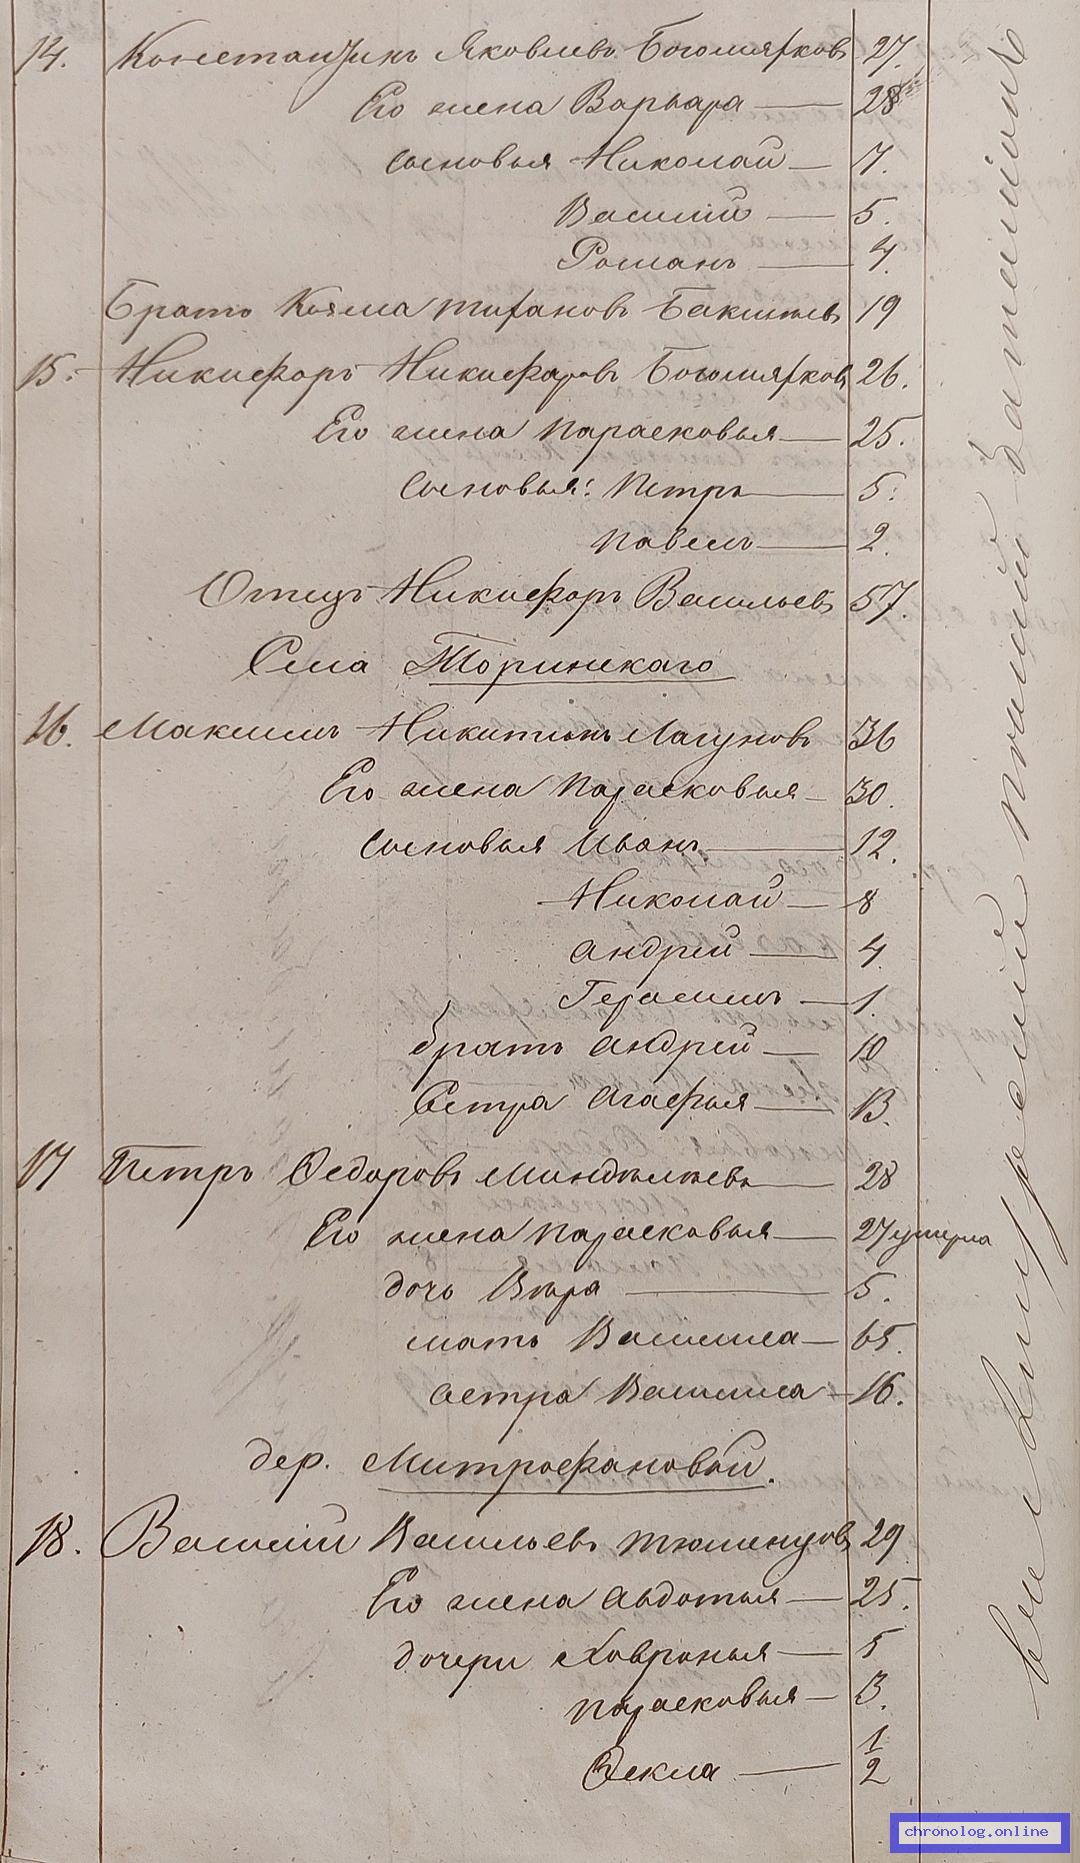 14. Константинъ Яковлевъ Богомягковъ 27.
Его жена Варвара — 28
Сыновья Николай — 7.
Василій — 5.
Романъ — 4.
Братъ Козма 19
15. Никифоръ Никифоровъ Богомягковъ 26.
Его жена Парасковья — 25.
Сыновья: Петръ — 5.
Павелъ — 2.
Отецъ Никифоръ Васильевъ 57.
Села Торинскаго
16. Максимъ Никитинъ Лагуновъ 36
Его жена Парасковья — 30.
Сыновья Иванъ — 12.
Николай — 8
Андрей — 4.
Герасимъ — 1.
братъ Андрей — 10
Сестра Агафья — 13.
17 Петръ Федоровъ 28
Его жена Парасковья — 27 умерла
дочь Вѣра — 5.
мать Василиса — 65.
сестра Василиса — 16.
дер. Митрофановой.
18. Василій Васильевъ Тюменцовъ 29
Его жена Авдотья — 25.
дочери Ховронья — 5
Парасковья — 3.
Фекла — 1/2
chronolog.online